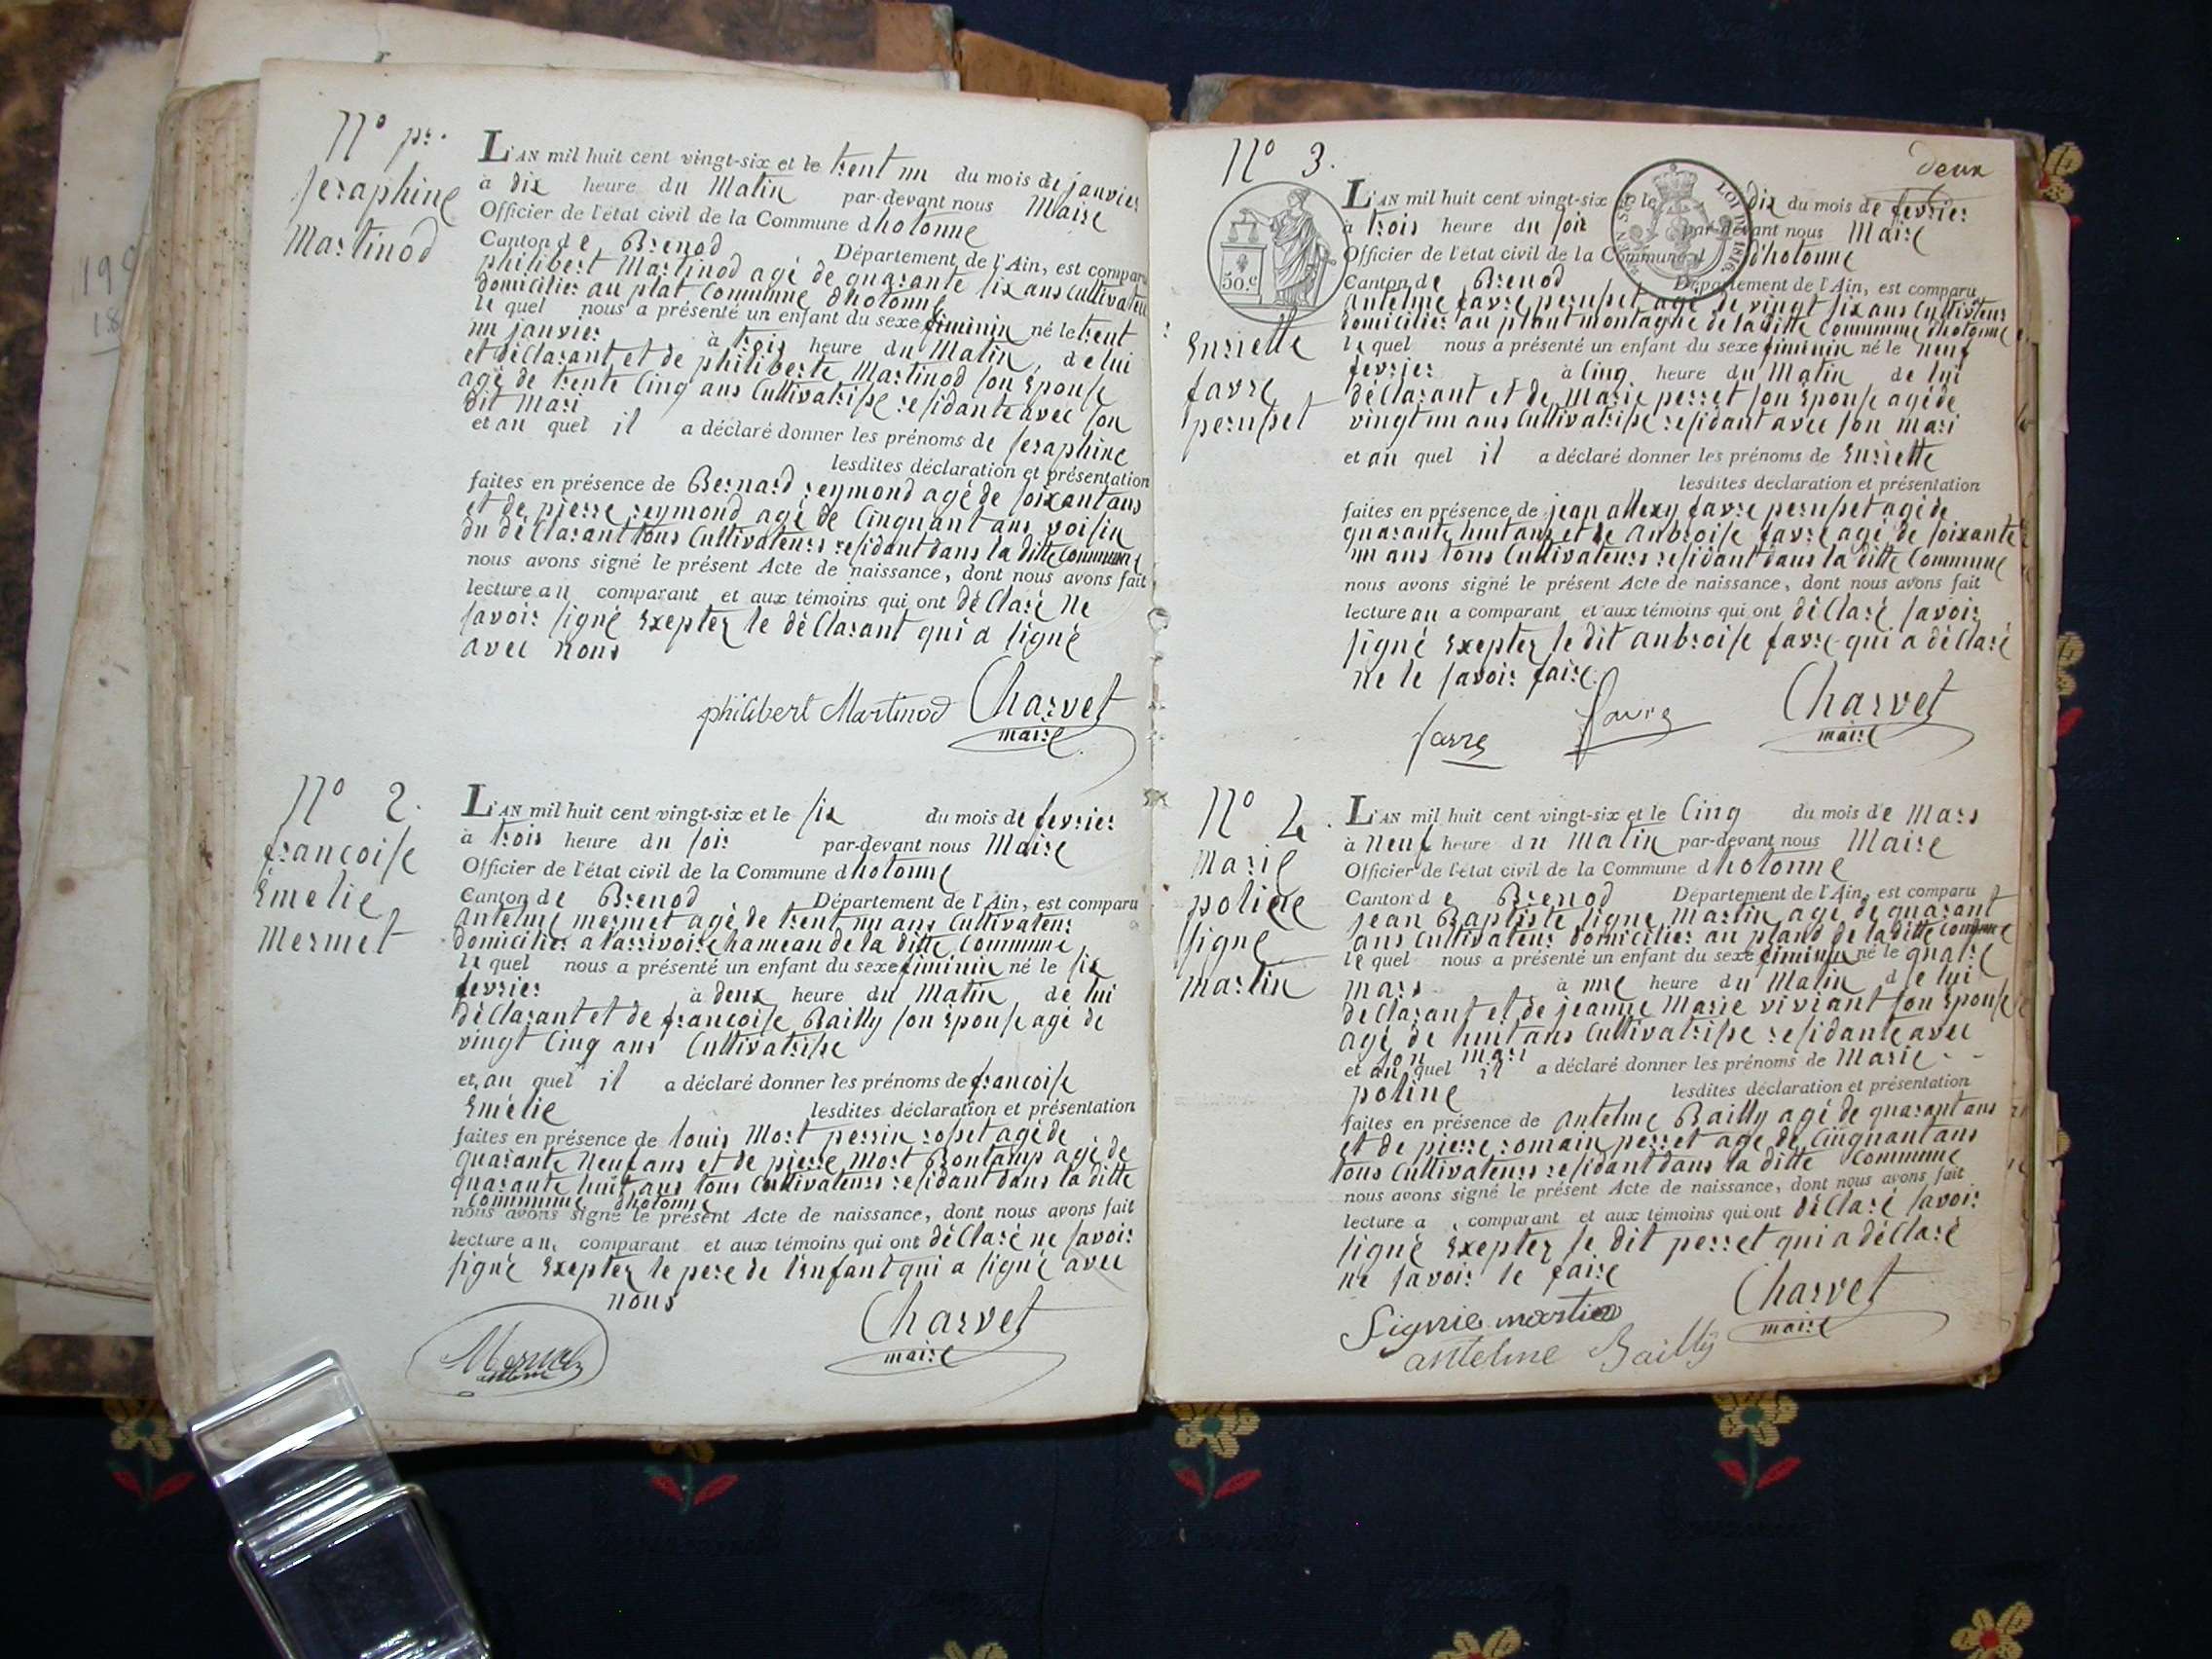 N° pr.
seraphine
Martinod
L'AN mil huit cent vingt-six et le trent un du mois de janvier
à dix heure du Matin par-devant nous Maire
Officier de l'état civil de la Commune dhotonne
Canton de Brenod Département de l'Ain, est comparu
philibert Martinod agé de quarante six ans Cultivateur
domicilier au plat Commune dhotonne
le quel nous a présenté un enfant du sexe fiminin né le trent
un janvier à trois heure du Matin, de lui
et déClarant et de philiberte Martinod son Epouse
agé de trente Cinq ans Cultivatrisse residante avec son
dit mari
et au quel il a déclaré donner les prénoms de seraphine
lesdites déclaration et présentation
faites en présence de Bernard reymond agé de soixant ans
et de pierre reymond agé de Cinquant ans voisin
du déClarant tous Cultivateurs residant dans la ditte Commune
nous avons signé le présent Acte de naissance, dont nous avons fait
lecture au comparant et aux témoins qui ont déClaré ne
savoir signé Exepter le déClarant qui a signé
avec nous
philibert Martinod Charvet
maire
N° 2.
francoise
Emelie
Mermet
L'AN mil huit cent vingt-six et le six du mois de fevrier
à trois heure du soir par-devant nous Maire
Officier de l'état civil de la Commune dhotonne
Canton de Brenod Département de l'Ain, est comparu
antelme mermet agé de trent un ans Cultivateur
domicilier a larrivoire hameau de la ditte Commune
le quel nous a présenté un enfant du sexe fiminin né le six
fevrier à deux heure du Matin, de lui
déClarant et de francoise Bailly son Epouse agé de
vingt Cinq ans Cultivatrisse
et au quel il a déclaré donner les prénoms de francoise
Emélie lesdites déclaration et présentation
faites en présence de louis Mort perrin rosset agé de
quarante Neuf ans et de pierre Mort Bontamp agé de
quarante huit ans tous Cultivateurs residant dans la ditte
Commune dhotonne
nous avons signé le présent Acte de naissance, dont nous avons fait
lecture au comparant et aux témoins qui ont déClaré ne savoir
signé Exepter le pere de lEnfant qui a signé avec
nous
Charvet
maire
deux
N° 3.
50.c
LOI DE 1816
Enriette
favre
perusset
L'AN mil huit cent vingt-six et le dix du mois de fevrier
à trois heure du soir par-devant nous Maire
Officier de l'état civil de la Commune d dhotonne
Canton de Brenod Département de l'Ain, est comparu
antelme favre perusset agé de vingt six ans Cultivteur
domicilier au plant montagne de la ditte Commune dhotonne
le quel nous a présenté un enfant du sexe fiminin né le neuf
fevrier à Cinq heure du Matin de lui
déClarant et de marie perret son Epouse agé de
vingt un ans Cultivatrisse residant avec son mari
et au quel il a déclaré donner les prénoms de Enriette
lesdites déclaration et présentation
faites en présence de jean allexy favre perusset agé de
quarante huit ans et de anbroise favre agé de soixante
un ans tous Cultivateurs residant dans la ditte Commune
nous avons signé le présent Acte de naissance, dont nous avons fait
lecture au a comparant et aux témoins qui ont déClaré savoir
signé Exepter le dit anbroise favre qui a déClaré
ne le savoir faire.
favre favre Charvet
maire
N° 4.
Marie
poline
signe
martin
L'AN mil huit cent vingt-six et le Cinq du mois de Mars
à Neuf heure du Matin par-devant nous Maire
Officier de l'état civil de la Commune dhotonne
Canton de Brenod Département de l'Ain, est comparu
jean Baptiste signe Martin agé de quarant
ans Cultivateur domicilier au pland de la ditte Commune
le quel nous a présenté un enfant du sexe fiminin né le quatre
mars à une heure du Matin de lui
déClarant et de jeanne Marie viviant son Epouse
agé de huit ans Cultivatrisse residante avec
son mari
et au quel il a déclaré donner les prénoms de Marie
poline lesdites déclaration et présentation
faites en présence de antelme Bailly agé de quarant ans
et de pierre romain perret age de Cinquant ans
tous Cultivateurs residant dans la ditte Commune
nous avons signé le présent Acte de naissance, dont nous avons fait
lecture a comparant et aux témoins qui ont déClaré savoir
signé Exepter le dit perret qui a déClaré
ne savoir le faire
Charvet
maire
Signie martin
antelme Bailly